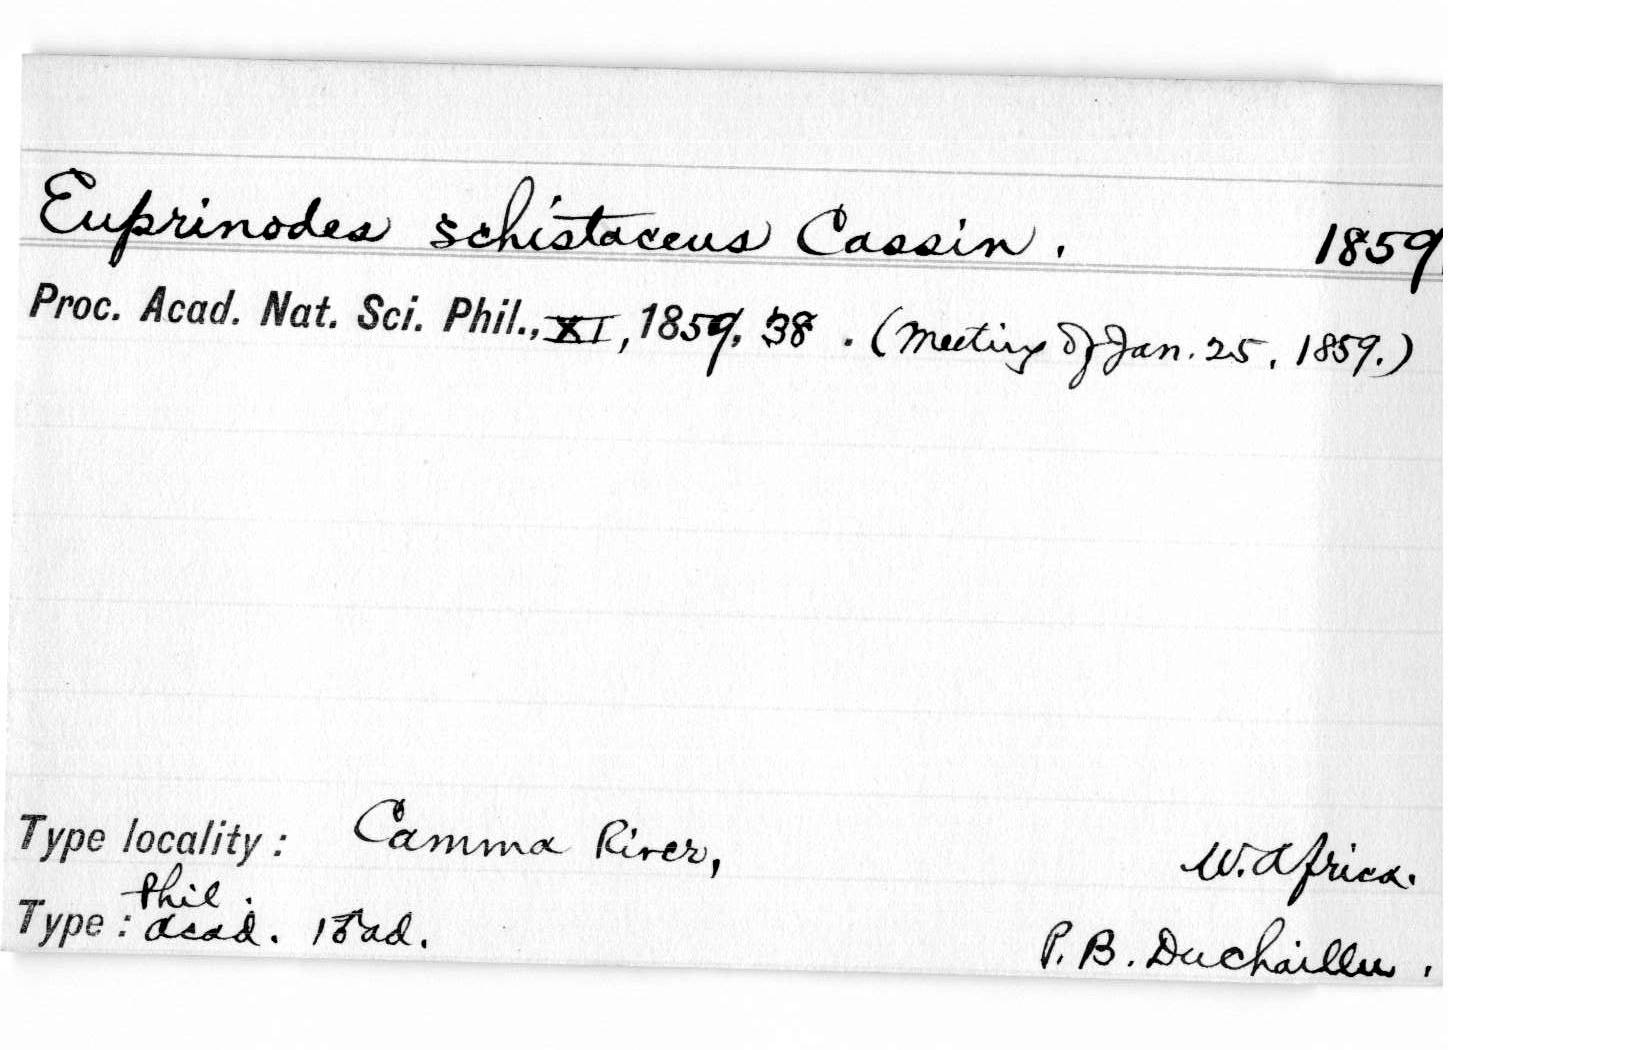 Euprinodes schistaceus Cassin. 1859
Proc. Acad. Nat. Sci. Phil., XI, 1859, 38. (Meeting of Jan. 25, 1859.)
Type locality: Camma River, W. Africa.
Phil.
Type: Acad. ad. P. B. Duchaillu.